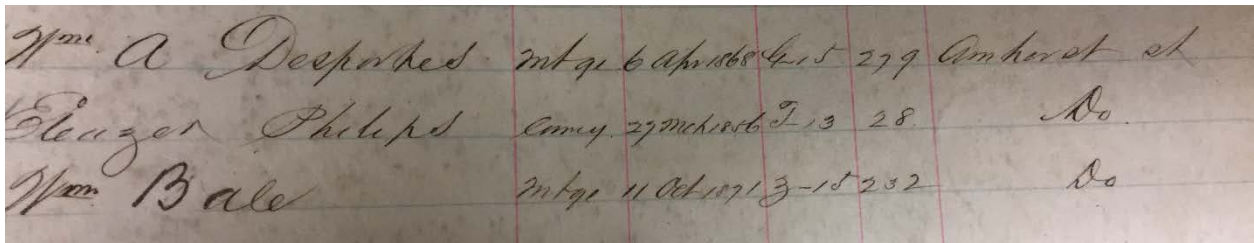 Wm. A Desportes Mtge 6 Apr 1868 G-15 279 Amherst st
Eleazer Philips Convey. 27 Mch 1856 T-13 28 Do.
Wm Bale Mtge 11 Oct 1871 Z-15 232 Do